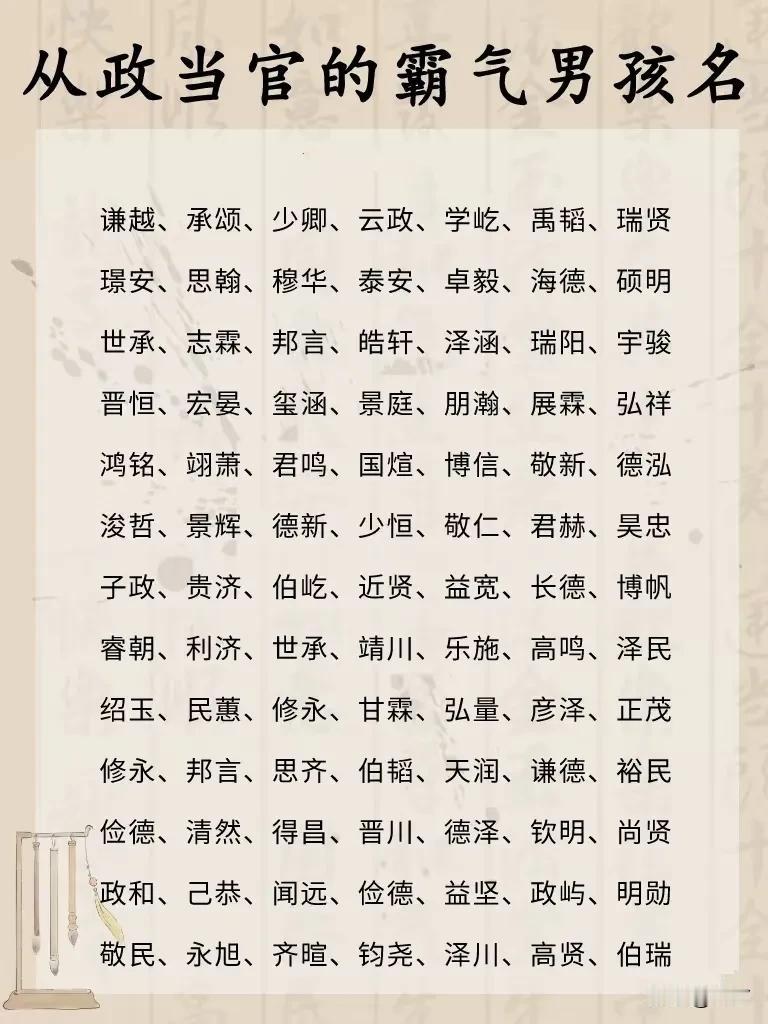 从政当官的霸气男孩名
谦越、承颂、少卿、云政、学屹、禹韬、瑞贤
璟安、思翰、穆华、泰安、卓毅、海德、硕明
世承、志霖、邦言、皓轩、泽涵、瑞阳、宇骏
晋恒、宏晏、玺涵、景庭、朋瀚、展霖、弘祥
鸿铭、翊萧、君鸣、国煊、博信、敬新、德泓
浚哲、景辉、德新、少恒、敬仁、君赫、昊忠
子政、贵济、伯屹、近贤、益宽、长德、博帆
睿朝、利济、世承、靖川、乐施、高鸣、泽民
绍玉、民蕙、修永、甘霖、弘量、彦泽、正茂
修永、邦言、思齐、伯韬、天润、谦德、裕民
俭德、清然、得昌、晋川、德泽、钦明、尚贤
政和、己恭、闻远、俭德、益坚、政屿、明勋
敬民、永旭、齐暄、钧尧、泽川、高贤、伯瑞